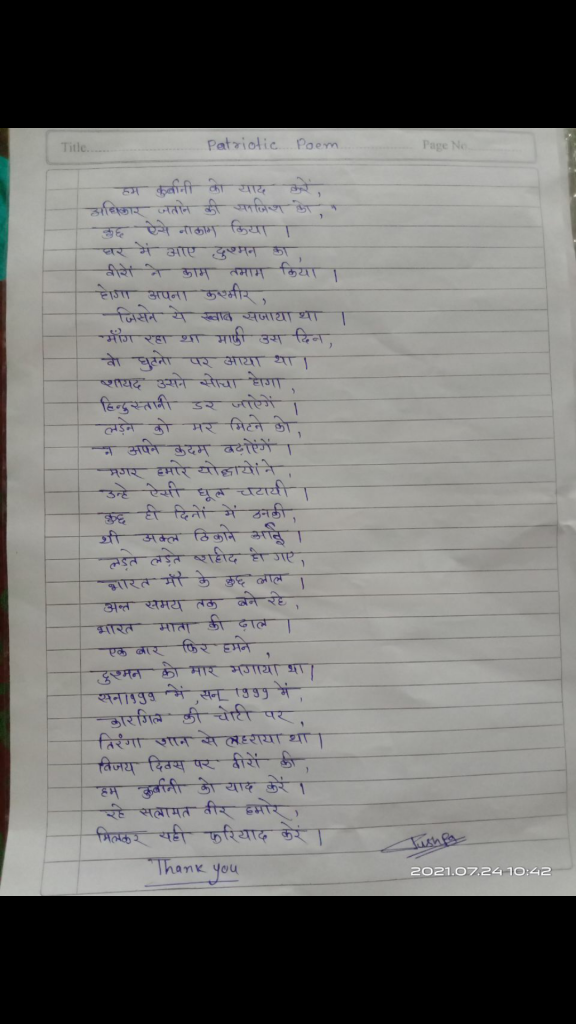 Title...... Patriotic Poem Page No
हम कुर्बानी को याद करें,
अधिकार जताने की साजिश को,
कुछ ऐसे नाकाम किया ।
घर में आए दुश्मन का,
वीरों ने काम तमाम किया ।
होगा अपना कश्मीर,
जिसने ये ख्वाब सजाया था ।
माँग रहा था माफ़ी उस दिन,
वो घुटनो पर आया था ।
शायद उसने सोचा होगा,
हिन्दुस्तानी डर जाऐगें ।
लड़ने को मर मिटने को,
न अपने कदम बढ़ाऐगें ।
मगर हमारे योद्धायों ने,
उन्हे ऐसी धूल चटायी ।
कुछ ही दिनों में उनकी,
थी अक्ल ठिकाने आई ।
लड़ते लड़ते शहीद हो गए,
भारत माँ के कुछ लाल ।
अन्त समय तक बने रहे,
भारत माता की ढ़ाल ।
एक बार फिर हमने,
दुश्मन को मार भगाया था ।
सन 1999 में, सन् 1999 में,
कारगिल की चोटी पर,
तिरंगा शान से लहराया था ।
विजय दिवस पर वीरों की,
हम कुर्बानी को याद करें ।
रहे सलामत वीर हमारे,
मिलकर यही फरियाद करें ।
Thank you
2021.07.24 10:42